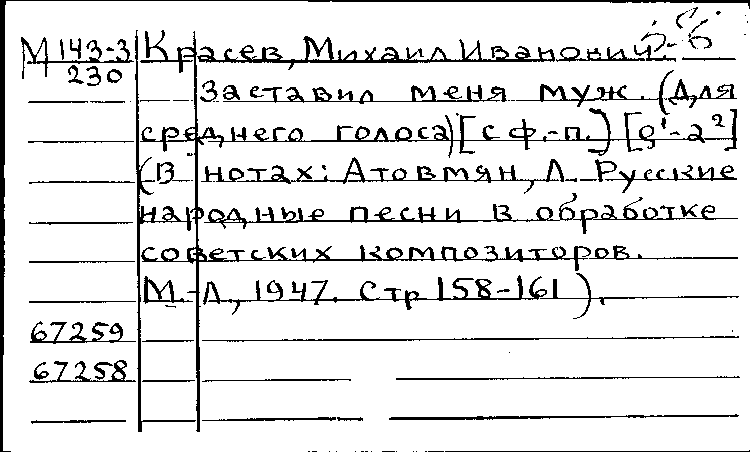 М 143-3 Красев, Михаил Иванович.
230
Заставил меня муж. (Для
среднего голоса) [с ф.-п.]
(В нотах: Атовмян, Л. Русские
народные песни в обработке
советских композиторов.
М.-Л., 1947. Стр 158-161).
67259
67258